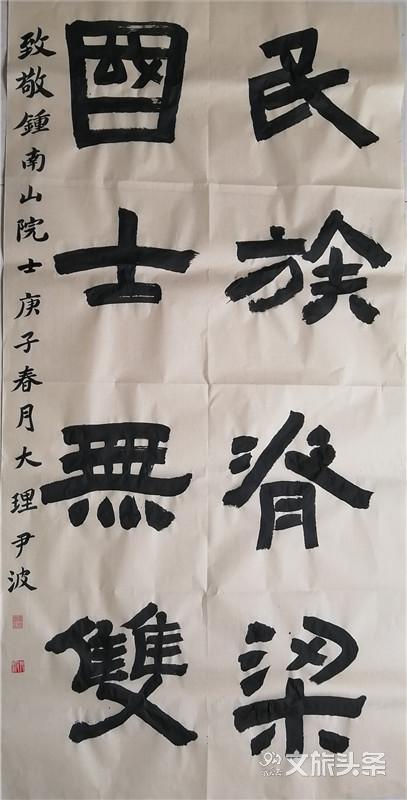 民族脊梁
國士無雙
致敬鍾南山院士庚子春月大理尹波
文旅头条